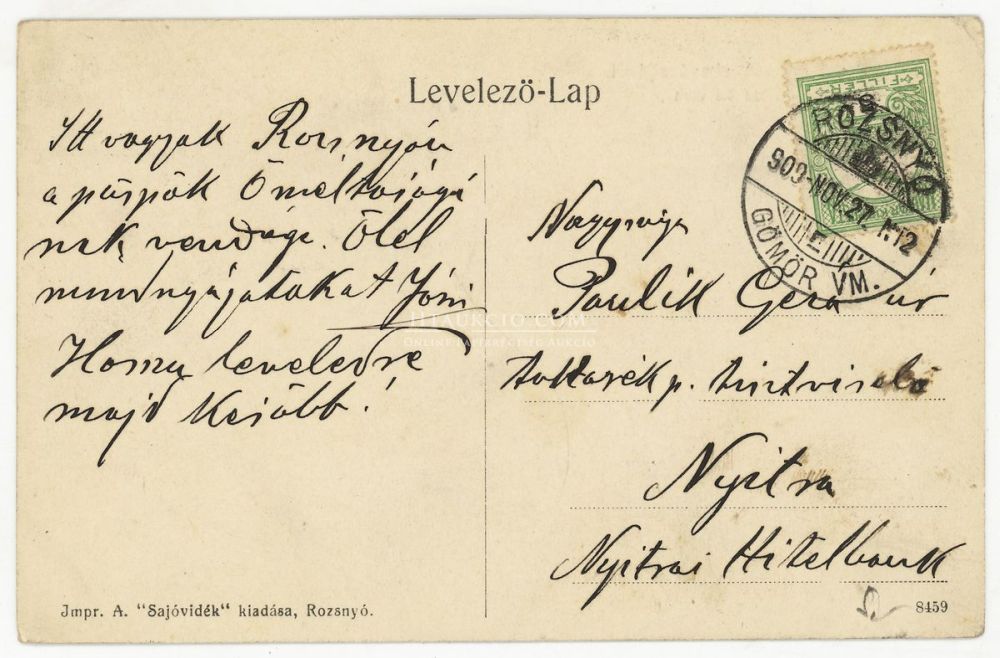 Levelező-Lap
Itt vagyok Rozsnyón
a püspök Őméltóságá
nak vendége. Ölel
mindnyájatokat Jóni
Hosszu leveledre
majd később!
FILLÉR
ROZSNYÓ
909-NOV.27. N12
E
GÖMÖR VM.
Nagysága
Paulik Géza úr
takarékp. tisztviselő
Nyitra
Nyitrai Hitelbank
HTAUKCIO.COM
ONLINE PAPÍRRÉGISÉG AUKCIÓ
Jmpr. A. "Sajóvidék" kiadása, Rozsnyó.
8459